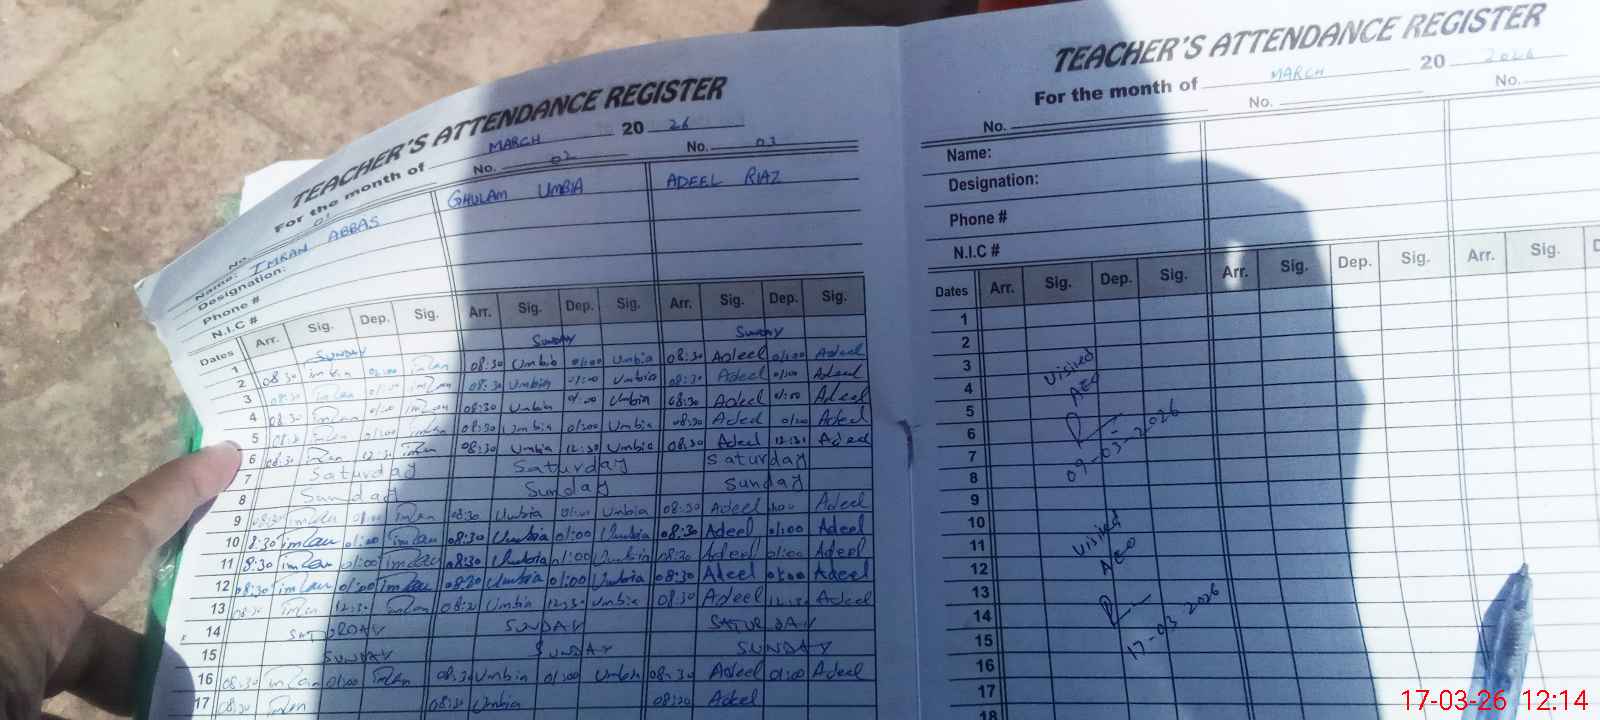 TEACHER'S ATTENDANCE REGISTER
For the month of MARCH 20 26
No. 01 No. 02 No. 03
Name: IMRAN ABBAS GHULAM UMBIA ADEEL RIAZ
Designation:
Phone #
N.I.C #
Dates Arr. Sig. Dep. Sig. Arr. Sig. Dep. Sig. Arr. Sig. Dep. Sig.
1 SUNDAY SUNDAY SUNDAY
2 08:30 imran 01:00 imran 08:30 Umbia 01:00 Umbia 08:30 Adeel 01:00 Adeel
3 08:30 imran 01:00 imran 08:30 Umbia 01:00 Umbia 08:30 Adeel 01:00 Adeel
4 08:30 imran 01:00 imran 08:30 Umbia 01:00 Umbia 08:30 Adeel 01:00 Adeel
5 08:30 imran 01:00 imran 08:30 Umbia 01:00 Umbia 08:30 Adeel 01:00 Adeel
6 08:30 imran 12:30 imran 08:30 Umbia 12:30 Umbia 08:30 Adeel 12:30 Adeel
7 Saturday Saturday Saturday
8 Sunday Sunday Sunday
9 08:30 imran 01:00 imran 08:30 Umbia 01:00 Umbia 08:30 Adeel 1:00 Adeel
10 8:30 imran 01:00 imran 08:30 Umbia 01:00 Umbia 08:30 Adeel 01:00 Adeel
11 8:30 imran 01:00 imran 08:30 Umbia 01:00 Umbia 08:30 Adeel 01:00 Adeel
12 08:30 imran 01:00 imran 08:30 Umbia 01:00 Umbia 08:30 Adeel 01:00 Adeel
13 08:30 imran 12:30 imran 08:30 Umbia 12:30 Umbia 08:30 Adeel 12:30 Adeel
14 SATURDAY SUNDAY SATURDAY
15 SUNDAY SUNDAY SUNDAY
16 08:30 imran 01:00 imran 08:30 Umbia 01:00 Umbia 08:30 Adeel 01:00 Adeel
17 08:30 imran 08:30 Umbia 08:30 Adeel
TEACHER'S ATTENDANCE REGISTER
For the month of MARCH 20 2026
No. No. No.
Name:
Designation:
Phone #
N.I.C #
Dates Arr. Sig. Dep. Sig. Arr. Sig. Dep. Sig. Arr. Sig. D
1
2
3
4
5
6
7
8
9
10
11
12
13
14
15
16
17
18
Visited
AEO
09-03-2026
Visited
AEO
17-03-2026
17-03-26 12:14